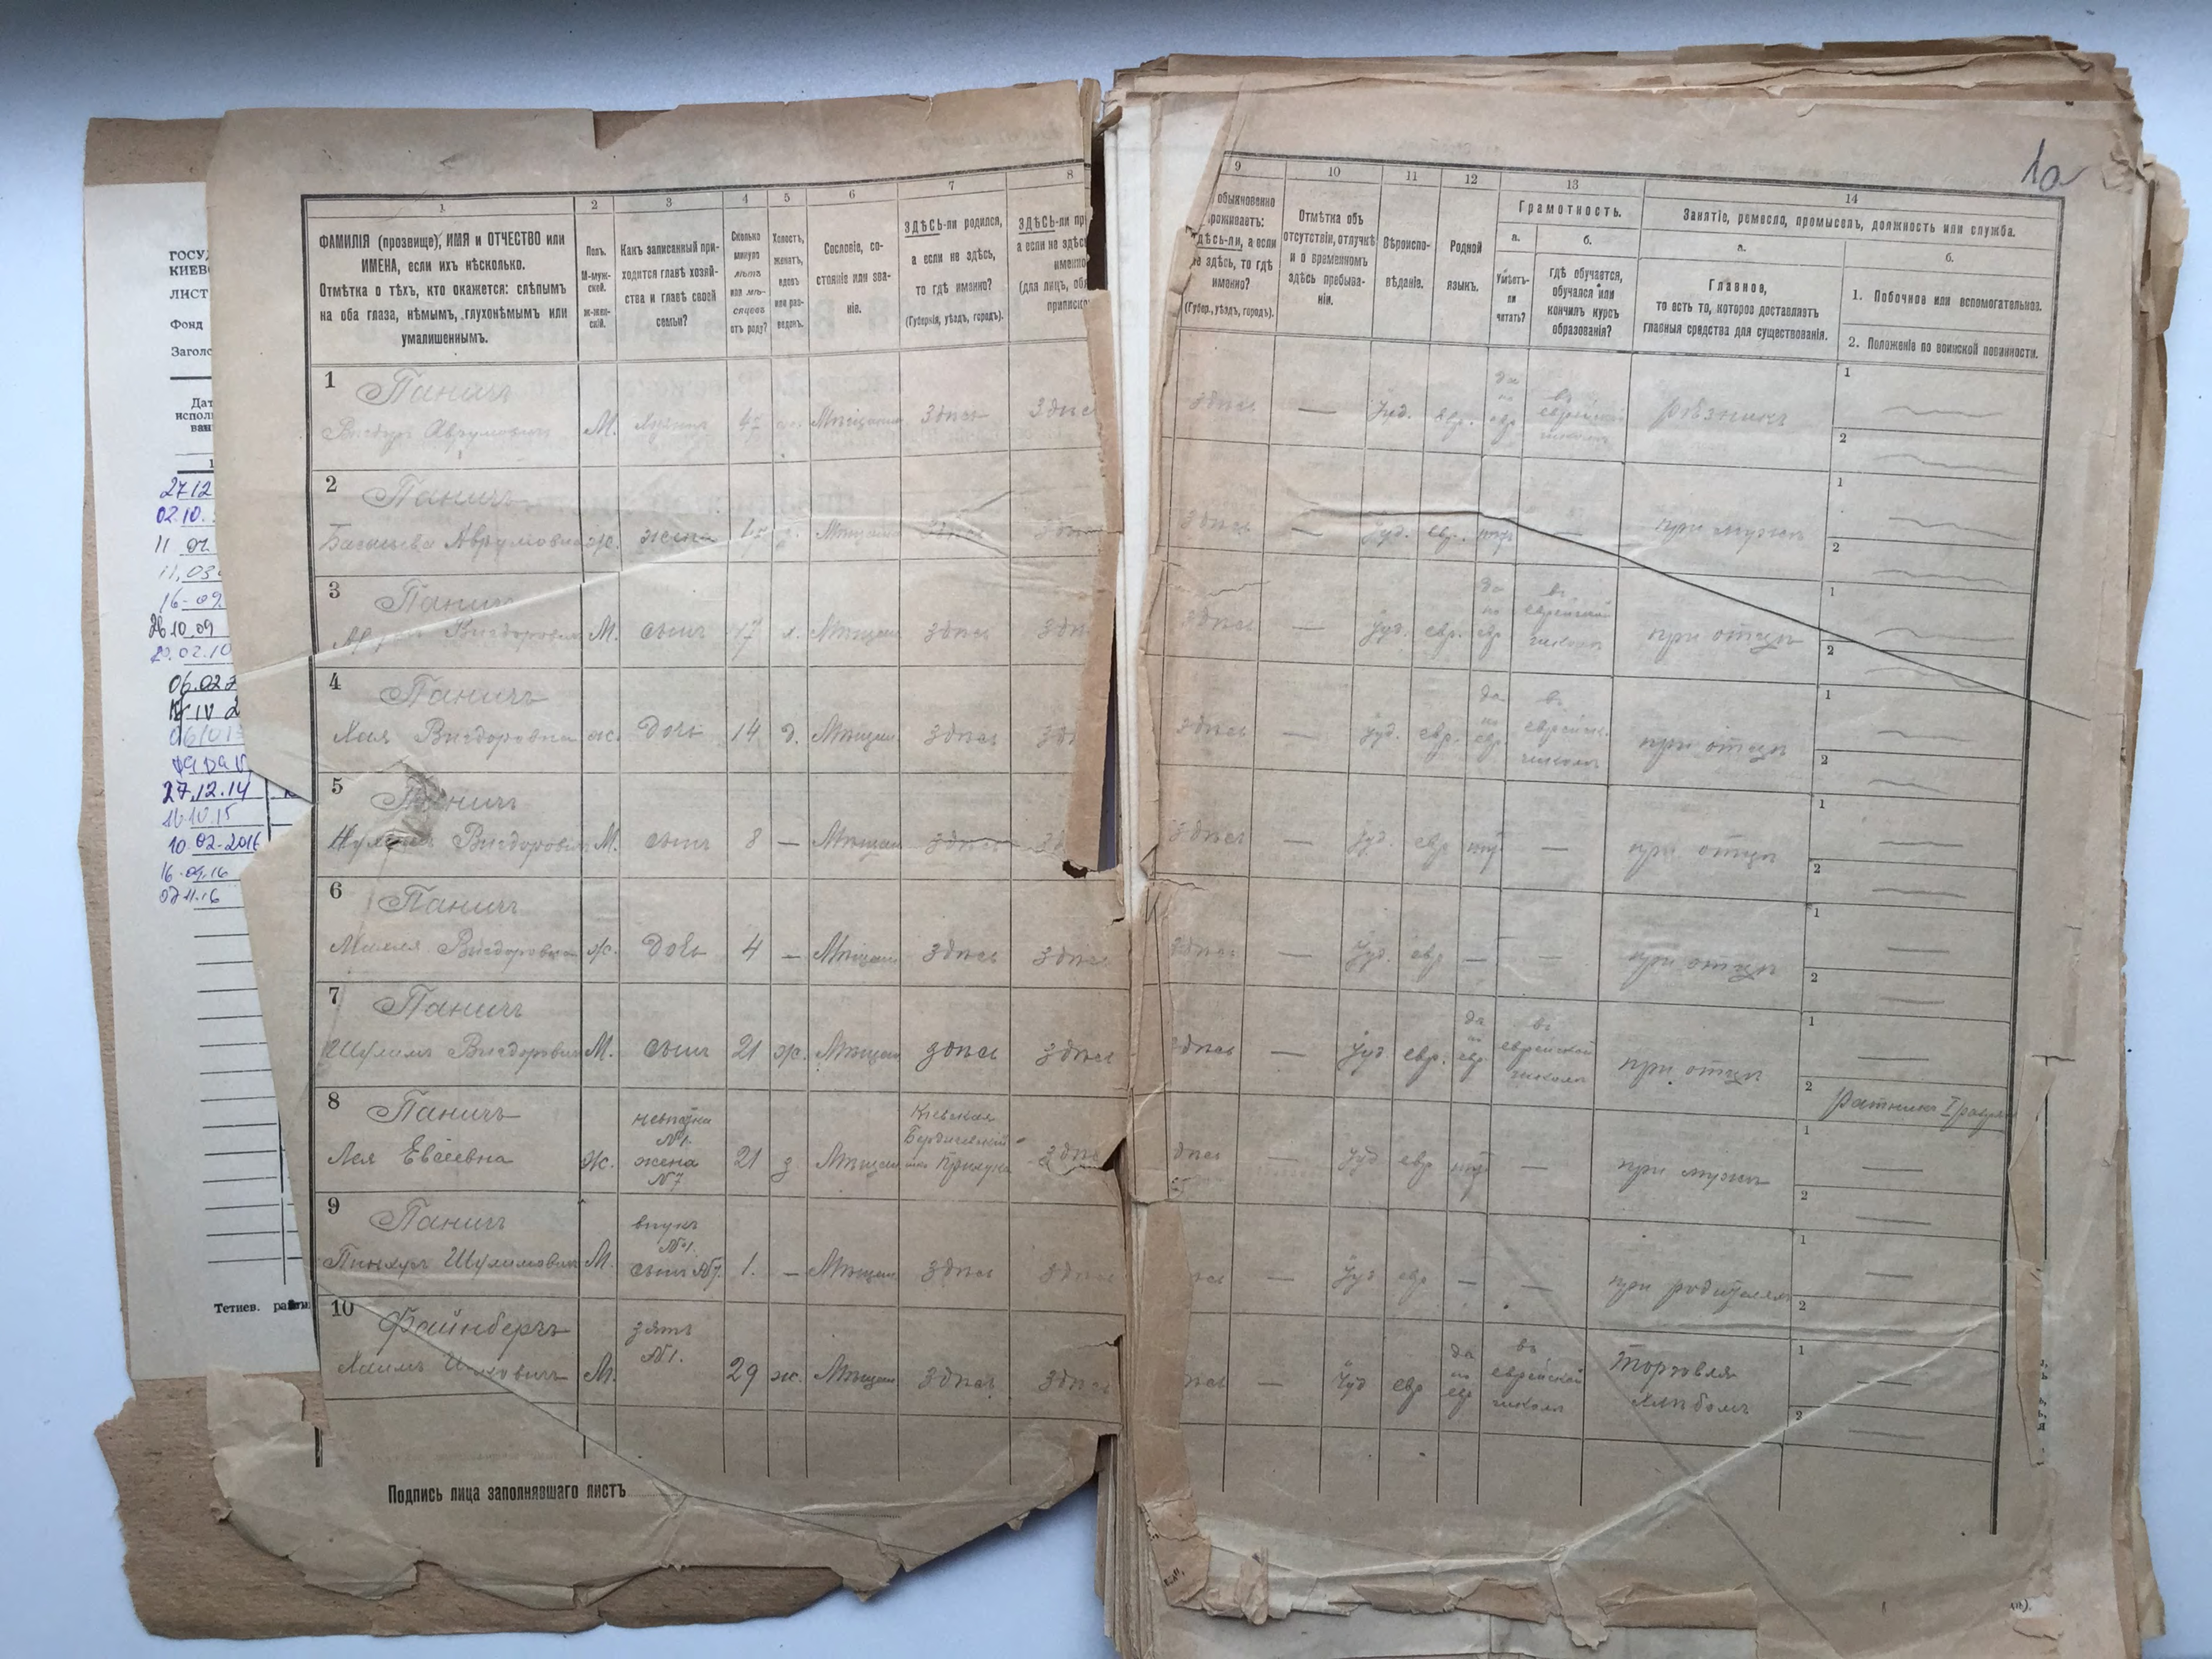 ГОСУ
КИЕВ
ЛИСТ
Фонд
Заголо
Дат
исполь
ван
1
27.12
02.10.
11 02
11.03
16-09
26.10.09
20.02.10
06.02.2
IV 2
27.12.14
16.10.15
10.02-2016
16.09.16
07.11.16
Тетиев.
1а
1 2 3 4 5 6 7 8
ФАМИЛІЯ (прозвище), ИМЯ и ОТЧЕСТВО или
ИМЕНА, если ихъ нѣсколько.
Отмѣтка о тѣхъ, кто окажется: слѣпымъ
на оба глаза, нѣмымъ, глухонѣмымъ или
умалишеннымъ.
Полъ.
М-муж-
ской.
ж-жен-
скій.
Какъ записанный при-
ходится главѣ хозяй-
ства и главѣ своей
семьи?
Сколько
минуло
лѣтъ
или мѣ-
сяцевъ
отъ роду?
Холостъ,
женатъ,
вдовъ
или раз-
веденъ.
Сословіе, со-
стояніе или зва-
ніе.
ЗДѢСЬ-ли родился,
а если не здѣсь,
то гдѣ именно?
(Губернія, уѣздъ, городъ).
ЗДѢСЬ-ли пр
а если не здѣс
именно
(для лицъ, об
приписк
9 10 11 12 13 14
обыкновенно
проживаетъ:
здѣсь-ли, а если
не здѣсь, то гдѣ
именно?
(Губер., уѣздъ, городъ).
Отмѣтка объ
отсутствіи, отлучкѣ
и о временномъ
здѣсь пребыва-
ніи.
Вѣроиспо-
вѣданіе.
Родной
языкъ.
Грамотность.
а. б.
Умѣетъ-
ли
читать?
гдѣ обучается,
обучался или
кончилъ курсъ
образованія?
Занятіе, ремесло, промыселъ, должность или служба.
а. б.
Главное,
то есть то, которое доставляетъ
главныя средства для существованія.
1. Побочное или вспомогательное.
2. Положеніе по воинской повинности.
1 Паничъ
Вигдоръ Аврумовичъ М. 45 Мѣщанинъ здѣсь здѣсь
здѣсь — Іуд. евр. да по евр. въ еврейской школѣ рѣзникъ
1
2
2 Паничъ
Аврумовна ж. жена 45 з. Мѣщанка здѣсь здѣсь
здѣсь — Іуд. евр. нѣтъ — при мужѣ
1
2
3 Паничъ
Вигдоровичъ М. сынъ 17 х. Мѣщан. здѣсь здѣсь
здѣсь — Іуд. евр. да по евр. въ еврейской школѣ при отцѣ
1
2
4 Паничъ
Хая Вигдоровна ж. дочь 14 д. Мѣщан. здѣсь здѣ
здѣсь — Іуд. евр. да по евр. въ еврейск. школѣ при отцѣ
1
2
5 Паничъ
Вигдоровичъ М. сынъ 8 — Мѣщан. здѣсь зд
здѣсь — Іуд. евр. нѣтъ — при отцѣ
1
2
6 Паничъ
Вигдоровна ж. дочь 4 — Мѣщан. здѣсь здѣсь
здѣсь — Іуд. евр. — — при отцѣ
1
2
7 Паничъ
Шулимъ Вигдоровичъ М. сынъ 21 ж. Мѣщан. здѣсь здѣсь
здѣсь — Іуд. евр. да по евр. въ еврейской школѣ при отцѣ
1
2 Ратникъ I разряда
8 Паничъ
Лея Евсеевна Ж. невѣстка №1. жена №7 21 з Мѣщан. Кіевская Бердичевскій здѣсь
здѣсь — Іуд. евр. нѣтъ — при мужѣ
1
2
9 Паничъ
Пинхусъ Шулимовичъ М. внукъ №1. сынъ №7. 1. — Мѣщан. здѣсь здѣсь
— Іуд. евр. — — при родителяхъ
1
2
10 Файнбергъ
Хаимъ М. зять №1. 29 ж. Мѣщан. здѣсь здѣсь
— Іуд. евр. да по евр. въ еврейской школѣ Торговля хлѣбомъ
1
2
Подпись лица заполнявшаго листъ